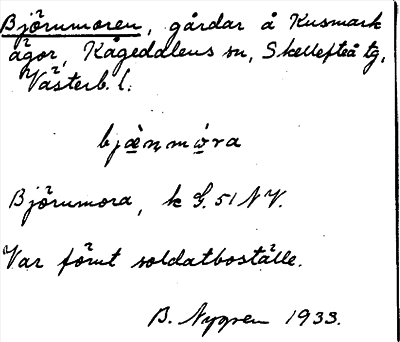 Björnmoren, gårdar å Kusmark
ägor, Kågedalens sn, Skellefteå tg,
Västerb. l.
bjæ̀ṇmὼra
Björnmora, k G. 51 NV.
Var förut soldatboställe.
B. Nygren 1933.